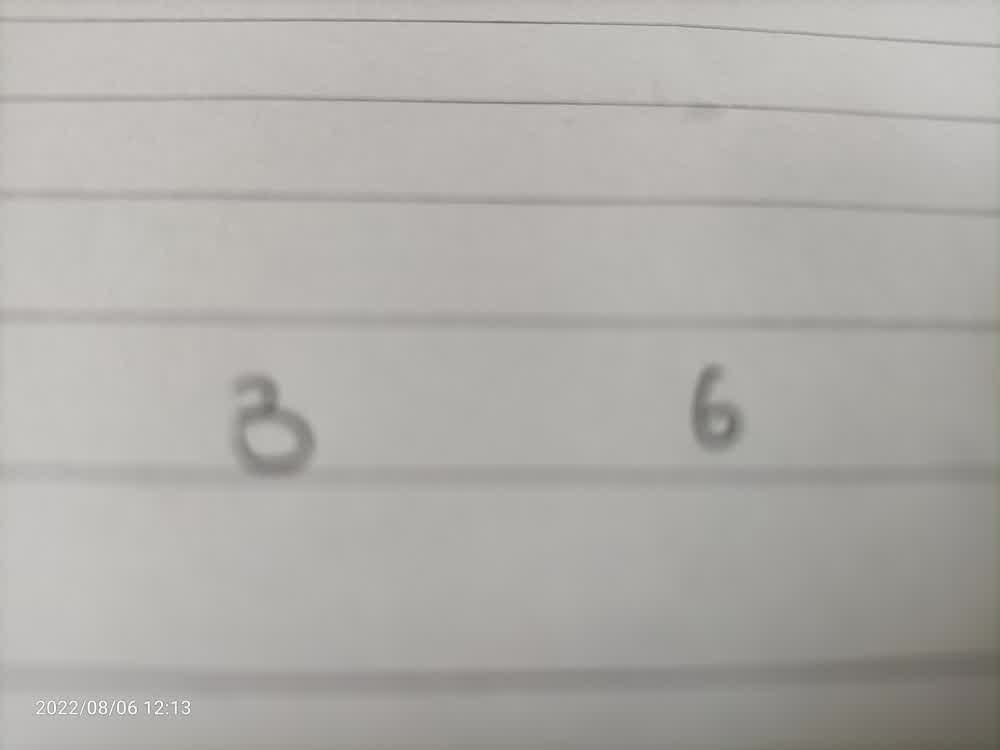 3 6
2022/08/06 12:13